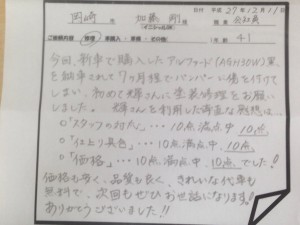 日付 平成 27年12月11日
岡崎 市 加藤 剛 様 職業 会社員
ご依頼内容 年齢 41
今回、新車で購入したアルファード(AGH30W)
を納車されて7ヶ月程でバンパーに傷を付けて
しまい、初めて輝さんに塗装修理をお願い
しました。輝さんを利用した率直な感想は、
○「スタッフの対応」…10点満点中10点
○「仕上り具合」…10点満点中10点
○「価格」…10点満点中、10点でした!
価格も安く、品質も良く、きれいな代車も
無料で、次回もぜひお世話になります!
ありがとうございました!!